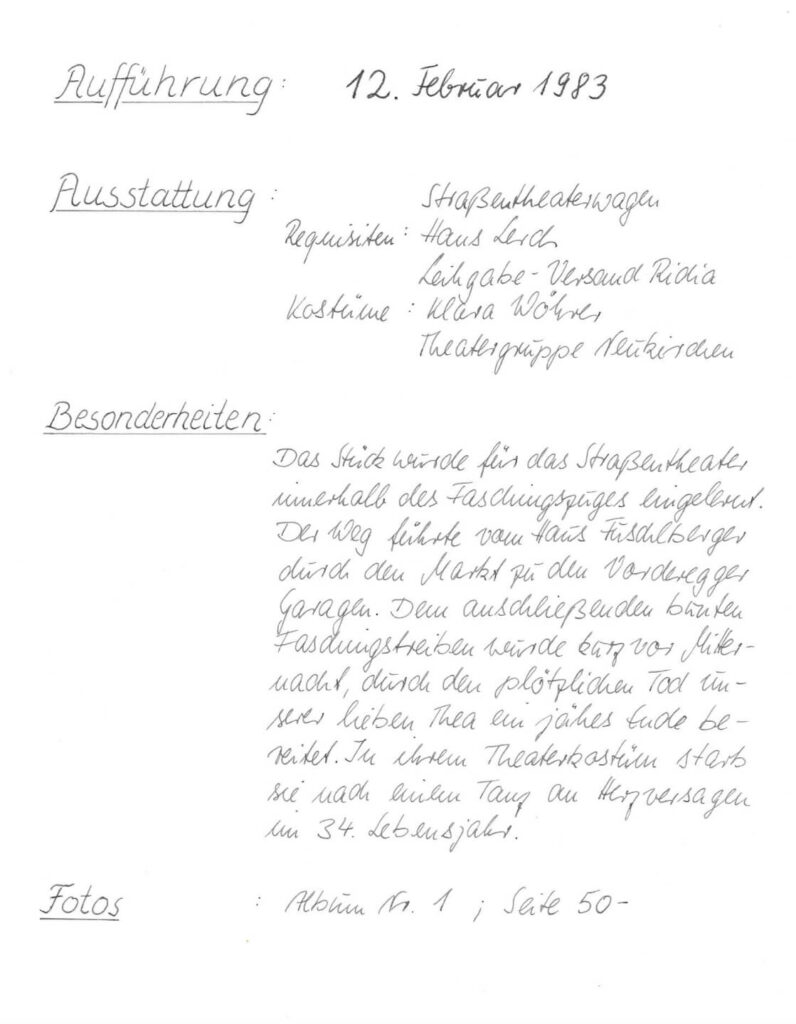 Aufführung: 12. Februar 1983
Ausstattung: Straßentheaterwagen
Requisiten: Hans Lerch
Leihgabe-Versand Ridia
Kostüme: Klara Wöhrer
Theatergruppe Neukirchen
Besonderheiten:
Das Stück wurde für das Straßentheater
innerhalb des Faschingszuges eingelernt.
Der Weg führte vom Haus Fuschlberger
durch den Markt zu den Vorderegger
Garagen. Dem anschließenden bunten
Faschingstreiben wurde kurz vor Mitter-
nacht, durch den plötzlichen Tod un-
serer lieben Thea ein jähes Ende be-
reitet. In ihrem Theaterkostüm starb
sie nach einem Tanz an Herzversagen
im 34. Lebensjahr.
Fotos : Album Nr. 1 ; Seite 50-